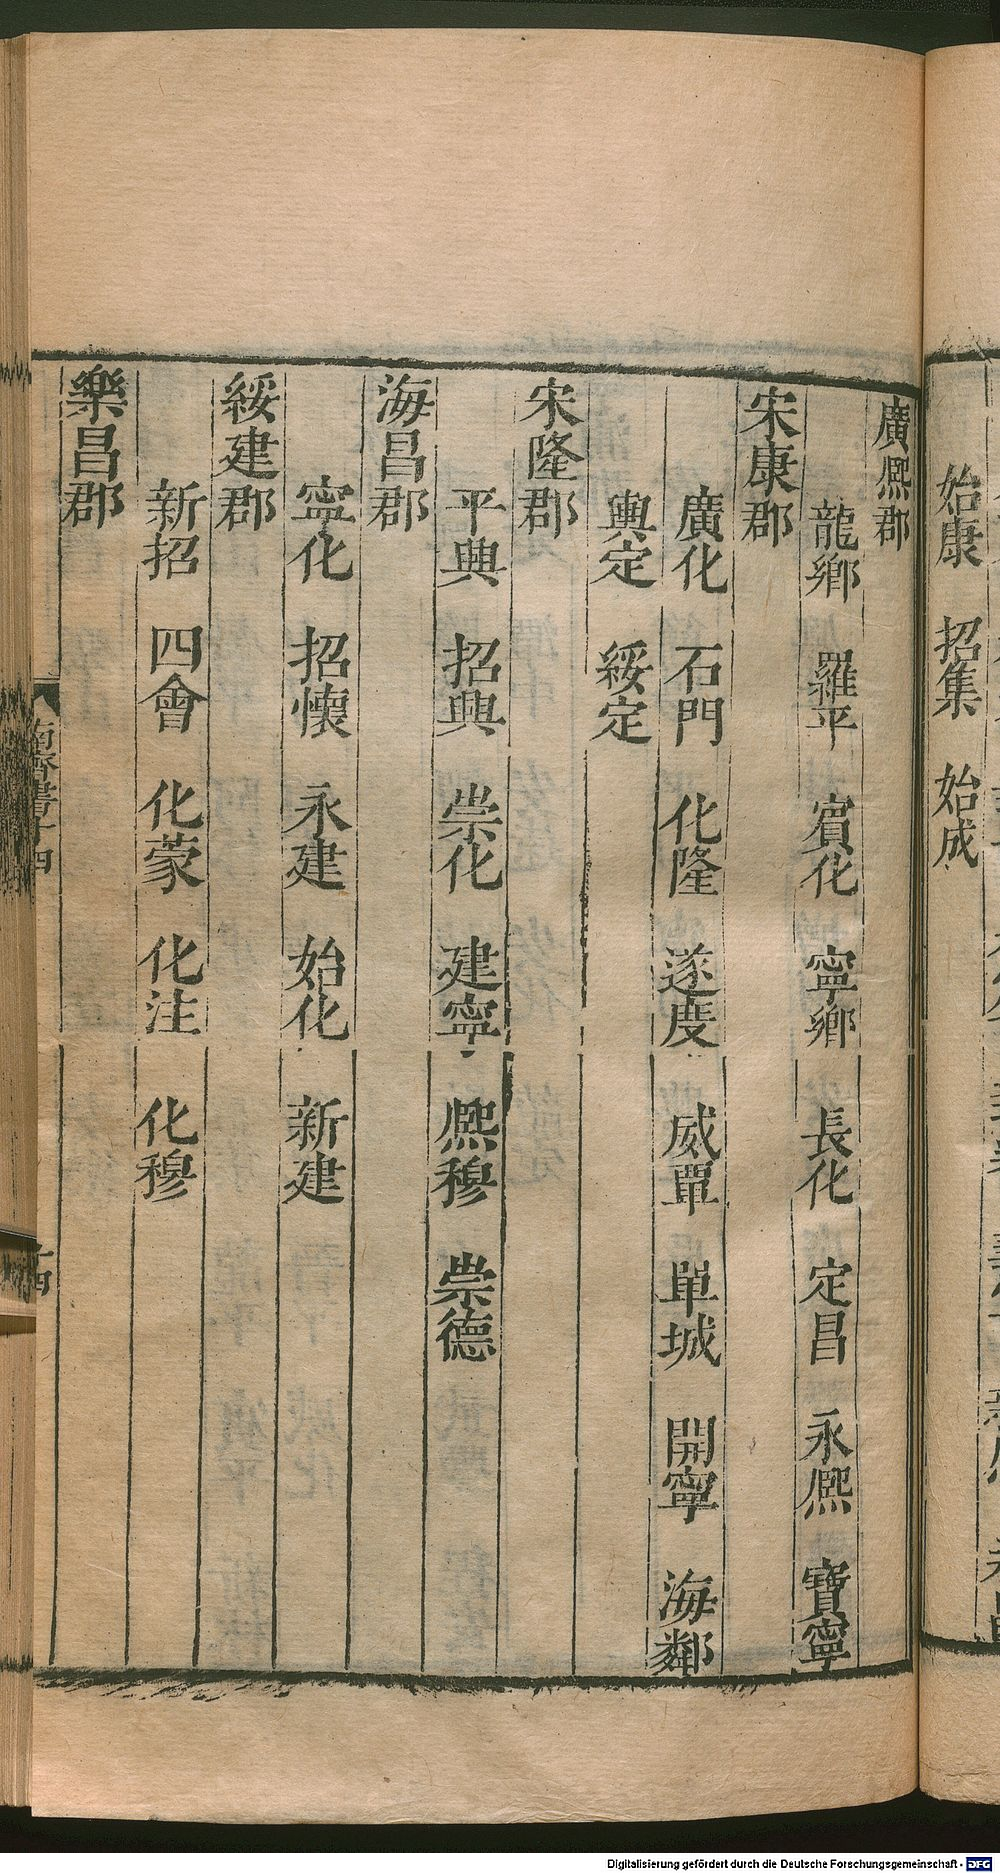 始康　招集　始成
廣熈郡
龍鄉　羅平　賔化　寧鄉　長化　定昌　永熈　寶寧
宋康郡
廣化　石門　化隆　遂度　威覃　單城　開寧　海鄰
輿定　綏定
宋隆郡
平興　招興　崇化　建寧　熈穆　崇德
海昌郡
寧化　招懷　永建　始化　新建
綏建郡
新招　四會　化蒙　化注　化穆
樂昌郡
南齊書十四
Digitalisierung gefördert durch die Deutsche Forschungsgemeinschaft - DFG